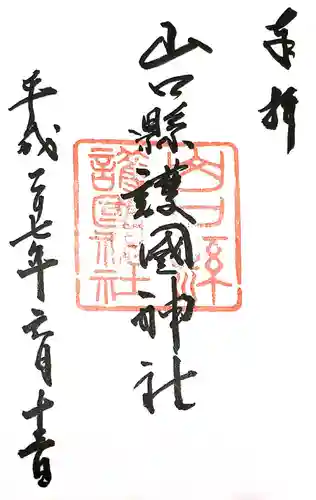 奉拝
山口縣護國神社
山口縣護國神社
平成二十七年六月十三日